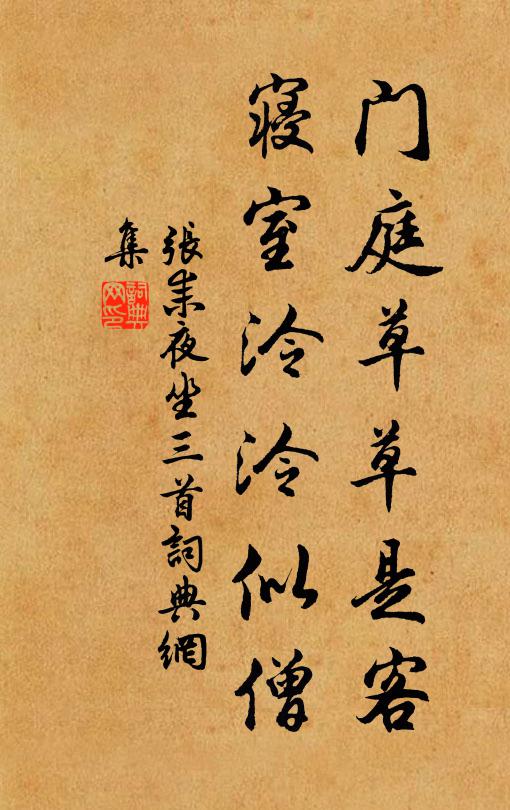 门庭草草是客
寢室泠泠似僧
張耒夜坐三首詞典網
集
詞典
网印